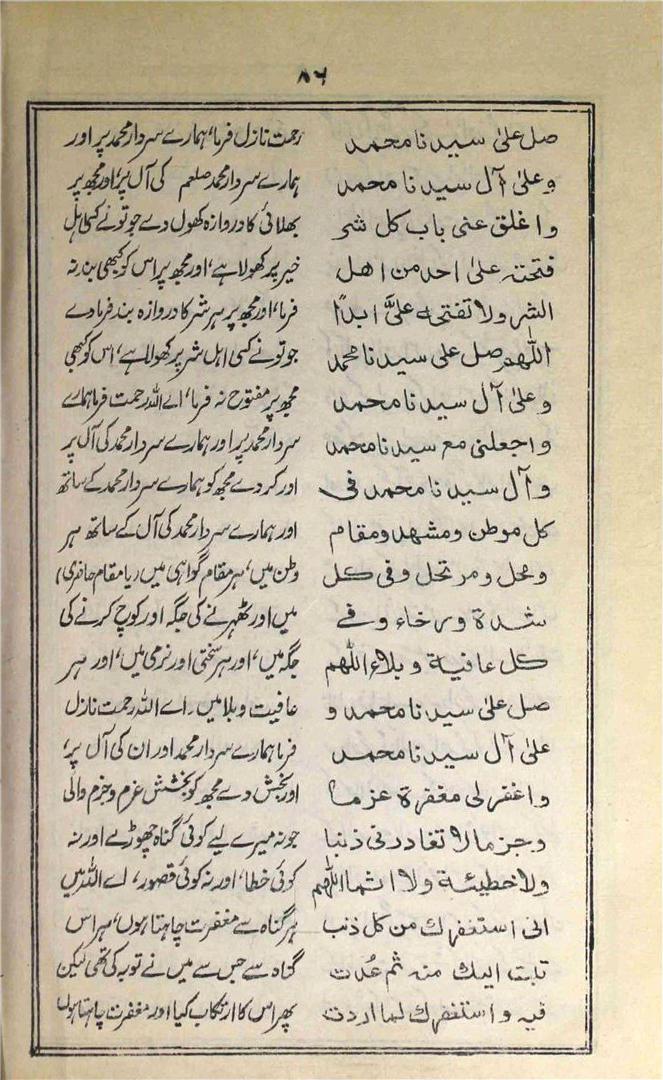 ۸۶
صل علیٰ سیدنا محمد
وعلیٰ آل سیدنا محمد
واغلق عنی باب کل شر
فتحتہ علیٰ احد من اھل
الشر ولا تفتحہ علیَّ ابدًا
اللّٰھم صل علی سیدنا محمد
وعلیٰ آل سیدنا محمد
واجعلنی مع سیدنا محمد
وآل سیدنا محمد فی
کل موطن ومشھد ومقام
ومحل ومرتحل وفی کل
شدة ورخاء وفے
کل عافیة وبلاء اللّٰھم
صل علیٰ سیدنا محمد و
علیٰ آل سیدنا محمد
واغفر لی مغفرة عزما
وجزما لا تغادر لی ذنبا
ولا خطیئة ولا اثما اللّٰھم
انی استغفرك من کل ذنب
تبت الیك منہ ثم عُدت
فیہ واستغفرك لما اردت
رحمت نازل فرما، ہمارے سردار محمد پر اور
ہمارے سردار محمد صلعم کی آل پر، اور مجھ پر
بھلائی کا دروازہ کھول دے جو تونے کسی اہل
خیر پر کھولا ہے، اور مجھ پر اس کو کبھی بند نہ
فرما، اور مجھ پر ہر شر کا دروازہ بند فرمادے
جو تونے کسی اہل شر پر کھولا ہے، اس کو کبھی
مجھ پر مفتوح نہ فرما، اے اللہ رحمت فرما ہمارے
سردار محمد پر اور ہمارے سردار محمد کی آل پر
اور کردے مجھ کو ہمارے سردار محمد کے ساتھ
اور ہمارے سردار محمد کی آل کے ساتھ ہر
وطن میں، ہر مقام گواہی میں (یا مقام حاضری)
میں اور ٹھہرنے کی جگہ اور کوچ کرنے کی
جگہ میں، اور ہر سختی اور نرمی میں، اور ہر
عافیت وبلا میں۔ اے اللہ رحمت نازل
فرما ہمارے سردار محمد اور ان کی آل پر،
اور بخش دے مجھ کو بخشش عزم وجزم والی
جو نہ میرے لیے کوئی گناہ چھوڑے اور نہ
کوئی خطا، اور نہ کوئی قصور، اے اللہ میں
ہر گناہ سے مغفرت چاہتا ہوں، ہر اس
گناہ سے جس سے میں نے توبہ کی تھی لیکن
پھر اس کا ارتکاب کیا اور مغفرت چاہتا ہوں